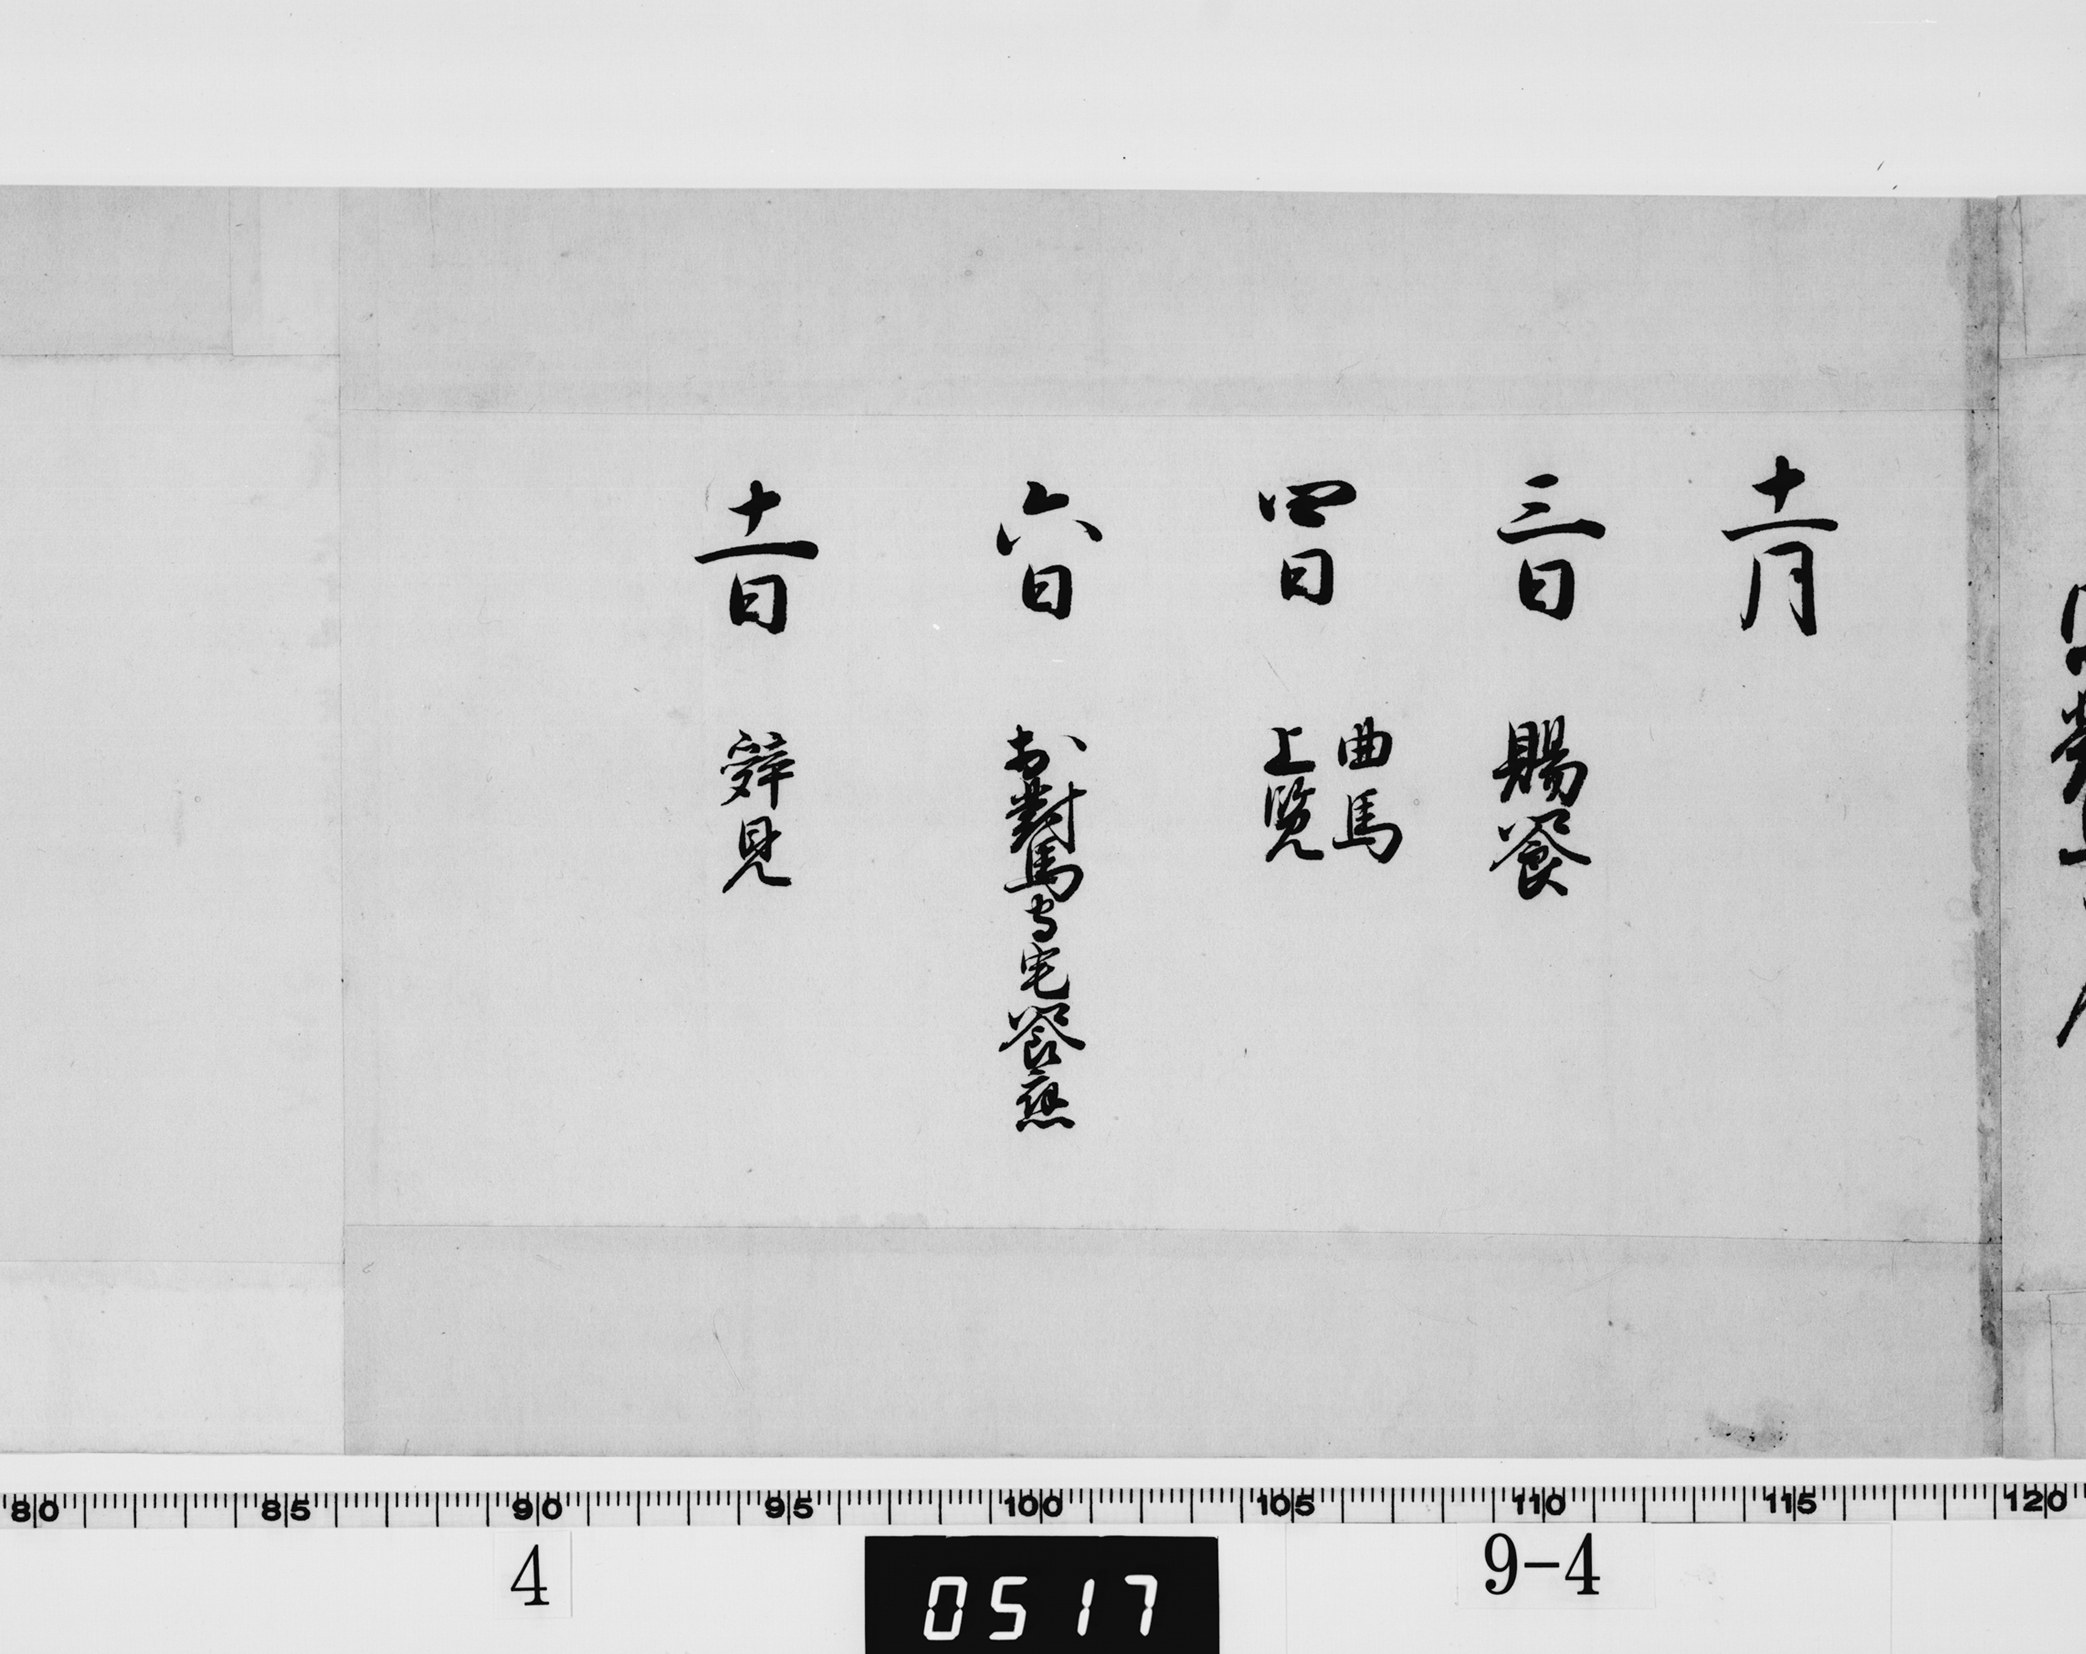 十一月
三日 賜饗
四日 曲馬
上覧
六日 於對馬守宅饗應
十一日 辭見
80 85 90 95 100 105 110 115 120
4 0517 9-4